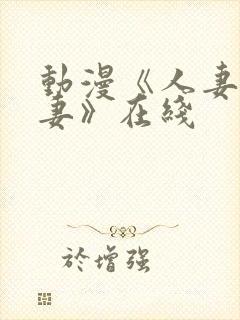 動漫《人妻
妻》在綫
於增强